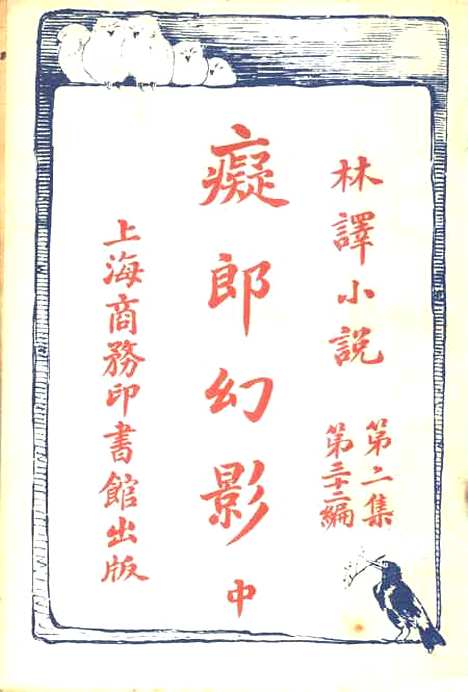 林譯小説
第二集
第三十二編
癡郎幻影 中
上海商務印書館出版